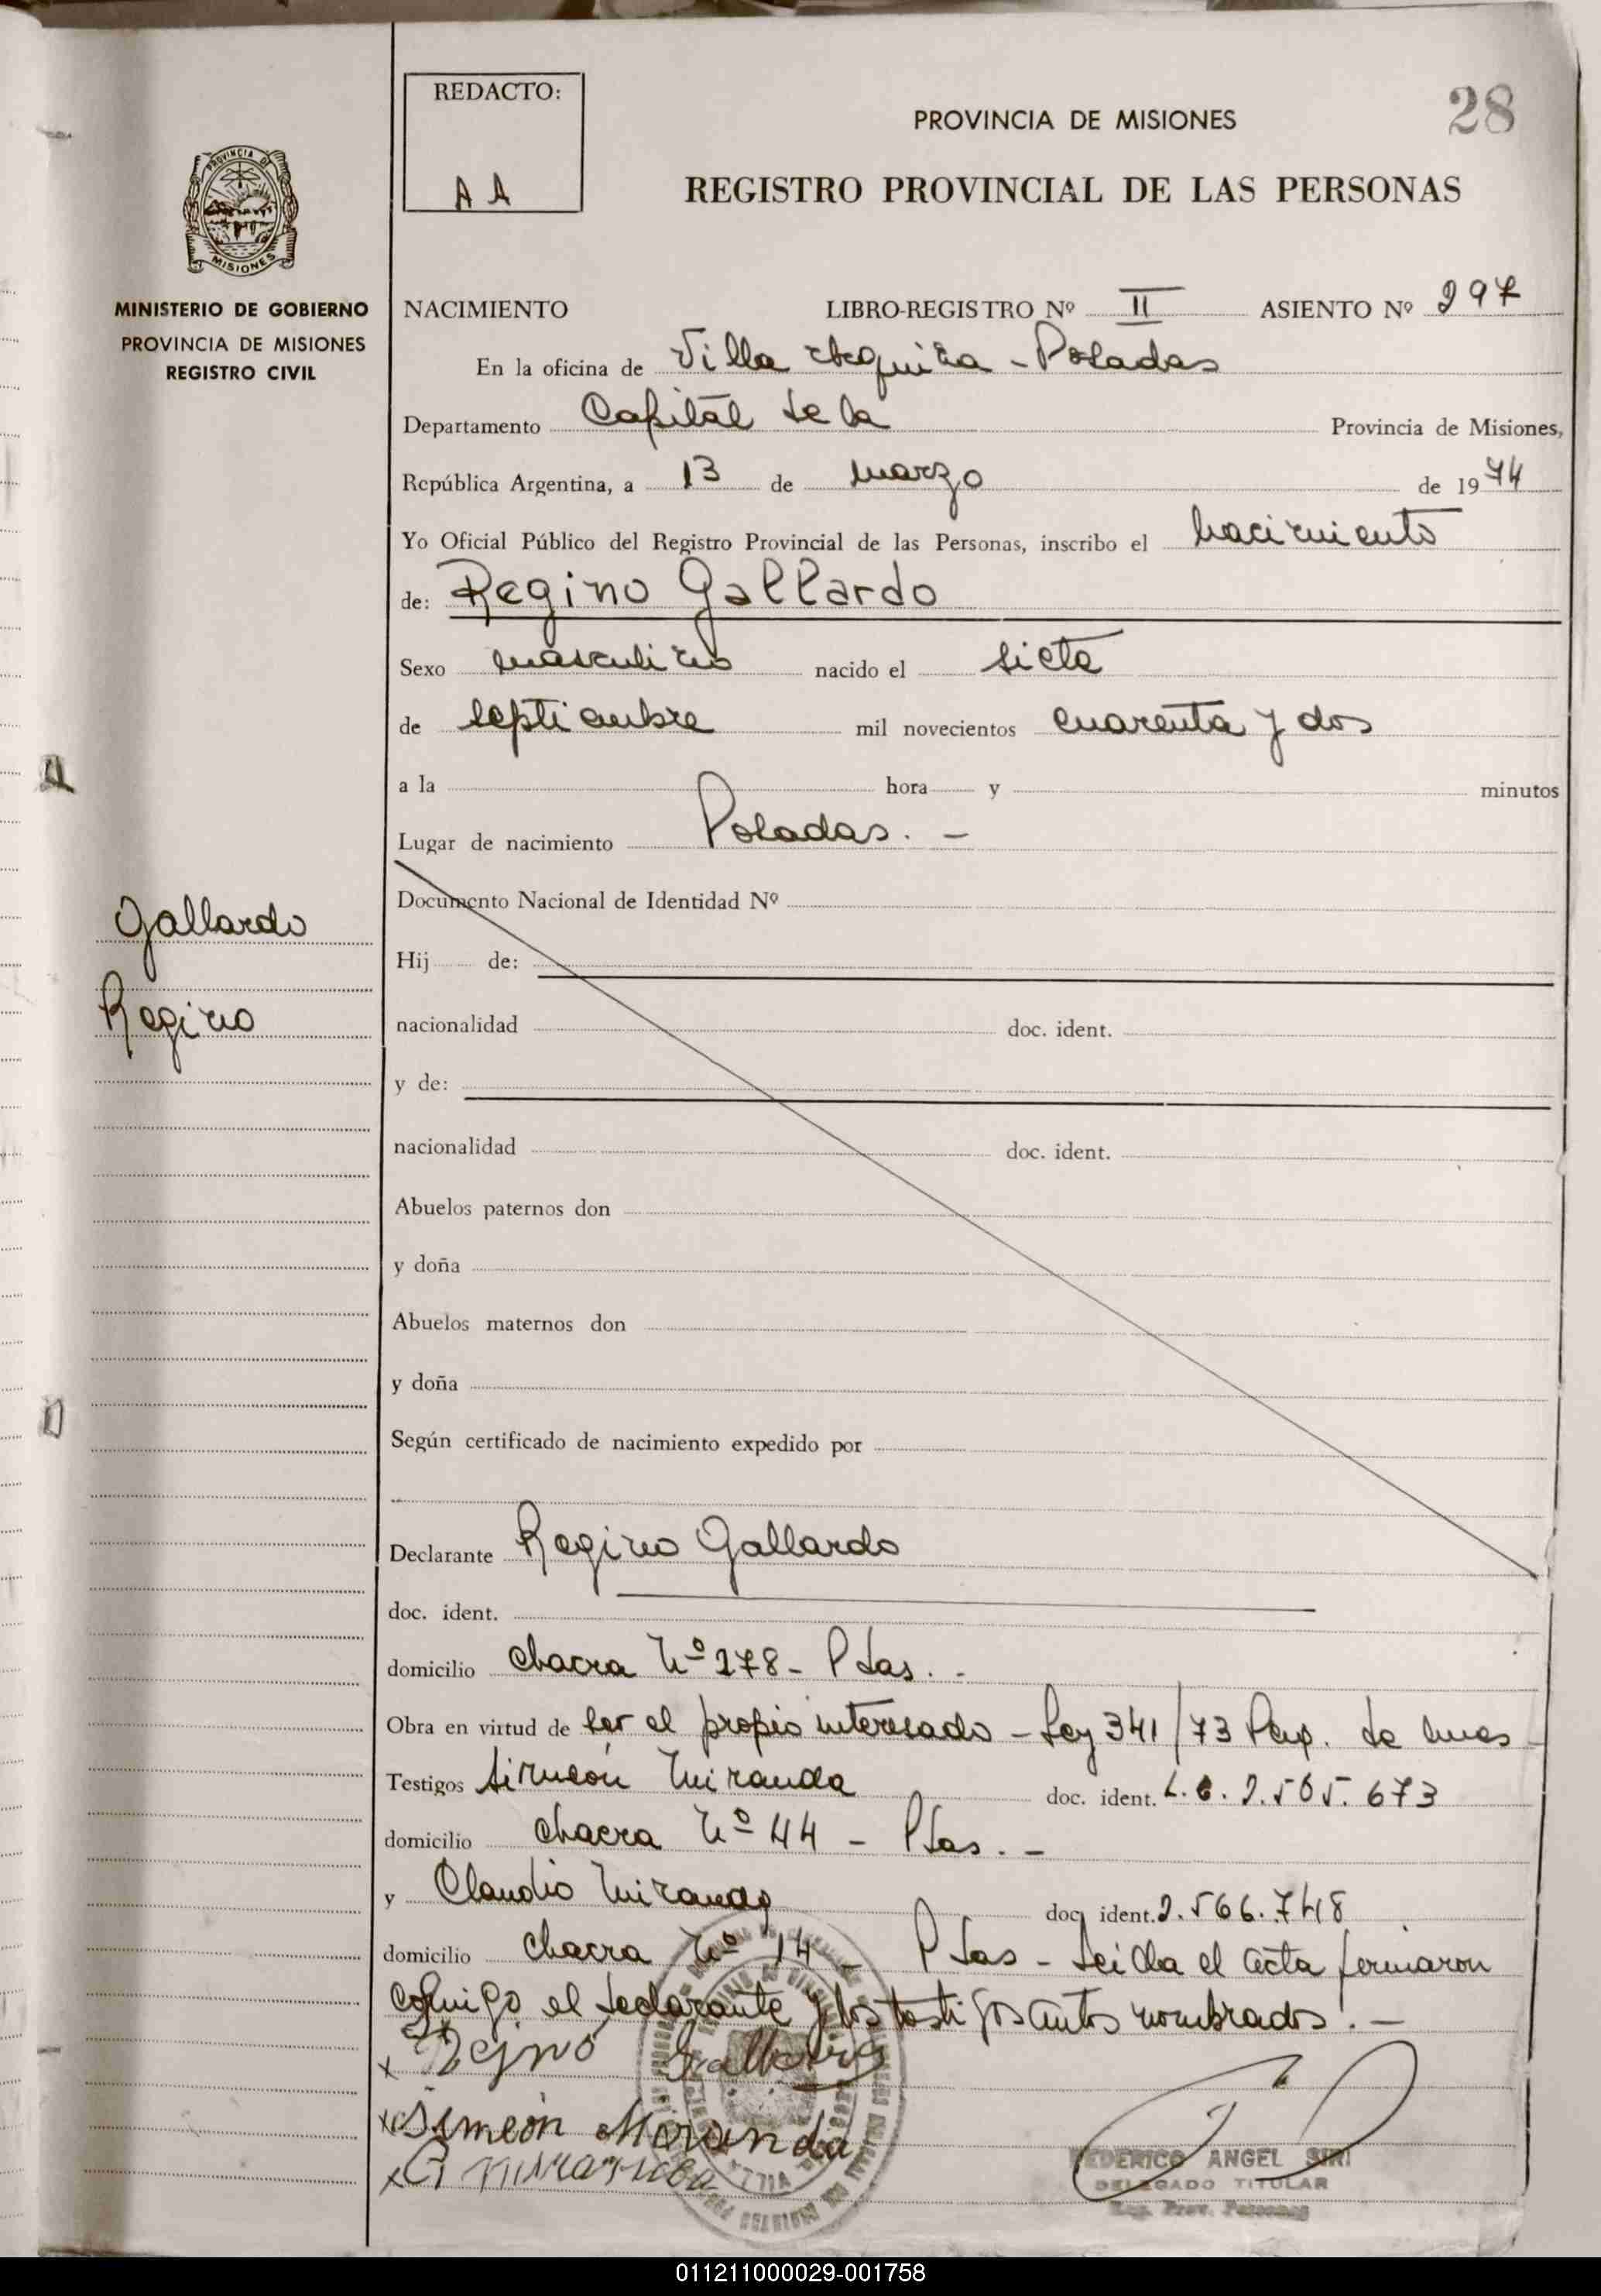 REDACTO:
A A
PROVINCIA DE MISIONES
28
REGISTRO PROVINCIAL DE LAS PERSONAS
PROVINCIA DE
MISIONES
MINISTERIO DE GOBIERNO
PROVINCIA DE MISIONES
REGISTRO CIVIL
NACIMIENTO LIBRO-REGISTRO Nº II ASIENTO Nº 297
En la oficina de Villa Urquiza - Posadas
Departamento Capital de la Provincia de Misiones,
República Argentina, a 13 de marzo de 1974
Yo Oficial Público del Registro Provincial de las Personas, inscribo el nacimiento
de: Regino Gallardo
Sexo masculino nacido el siete
de septiembre mil novecientos cuarenta y dos
a la hora y minutos
Lugar de nacimiento Posadas. -
Documento Nacional de Identidad Nº
Gallardo
Regino
Hij de:
nacionalidad doc. ident.
y de:
nacionalidad doc. ident.
Abuelos paternos don
y doña
Abuelos maternos don
y doña
Según certificado de nacimiento expedido por
Declarante Regino Gallardo
doc. ident.
domicilio Chacra Nº 178 - Pdas. -
Obra en virtud de ser el propio interesado - Ley 341/73 de
Testigos Simeón Miranda doc. ident. L.E. 2.505.673
domicilio Chacra Nº 44 - Pdas. -
y Claudio Miranda doc ident. 2.566.748
domicilio Chacra Nº 14 - Pdas - Leída el acta firmaron
conmigo el declarante y los testigos antes nombrados. -
x Rejino Gallardo
x Simeon Miranda
x C Miranda
FEDERICO ANGEL SIRI
DELEGADO TITULAR
Reg. Prov. Personas
011211000029-001758